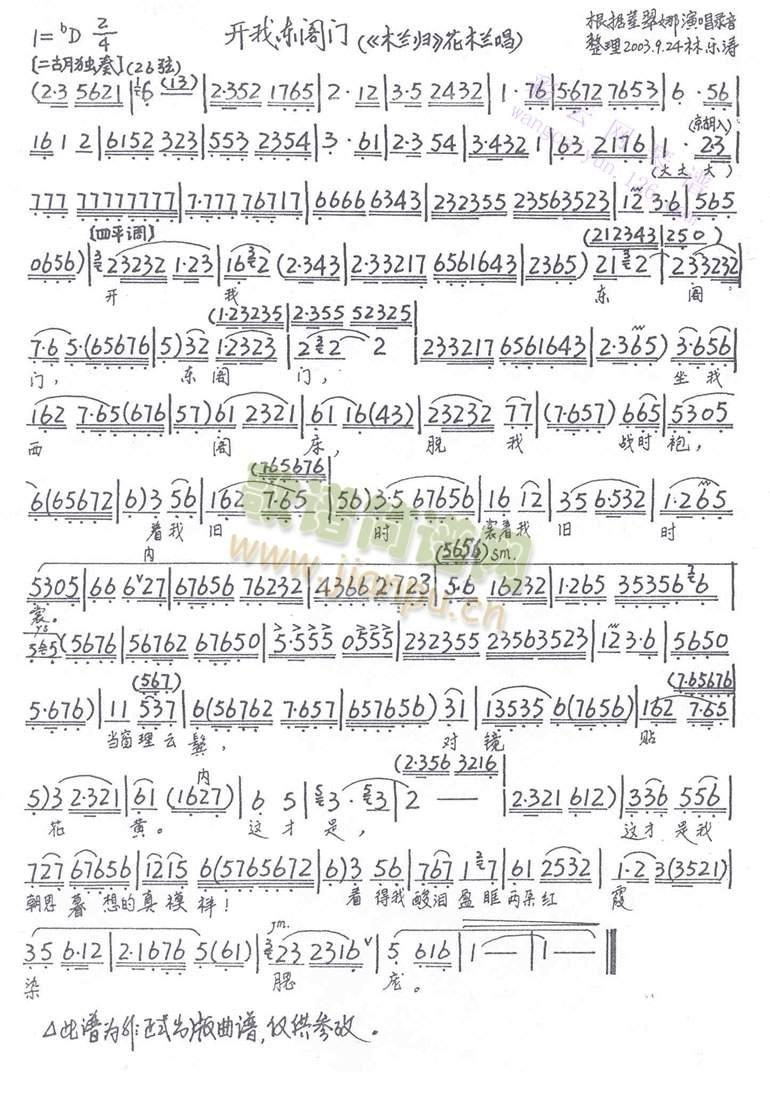 1=ᵇD 2/4
开我东阁门(《木兰归》花木兰唱)
根据董翠娜演唱录音
整理2003.9.24林乐涛
[二胡独奏](26弦)
(2·3 5621|6 (13)|2·352 1765|2·12|3·5 2432|1·76|5·672 7653|6·56|
(京胡入)
16 1 2|6152 323|553 2354|3·61|2·3 54|3·432 1|63 2176|1·23|
(大大大)
777 77777777|7·777 76717|6666 6343|232355 23563523|12 3·6|565
[四平调] (212343|250)
0656)|23232 1·23|16 2 (2·343|2·33217 6561643|2365) 21 2|233232|
开 我 东 阁
(1·23235|2·355 52325|
7·6 5·(65676|5)32 1·2323|2 2 2|233217 6561643|2·365) 3·656|
门, 东阁 门, 坐我
162 7·65(676|57)61 2321|61 16(43)|23232 77|(7·657) 665|5305|
西 阁 床, 脱 我 战时袍,
(765676|
6(65672|6)3 56|162 7·65|(56)3·5 67656|16 12|35 6·532|1·265|
着我 旧 时 裳着我 旧 时
内 (5656) sm.
5305|66 6ᵛ27|67656 76232|4366 2723|5·6 16232|1·265 35356 6|
裳。
5 5(5676|56762 67650|5·555 0555|232355 23563523|12 3·6|5650
(567) (7·65676|
5·676)|11 537|6(56762 7·657|657656) 31|13535 6(7656)|162 7·65|
当窗理云鬓, 对 镜 贴
内 (2·356 3216|
5)3 2·321|61 (1627)|6 5|3·3|2 — —|2·321 612)|336 556|
花 黄。 这才是, 这才是我
727 67656|1215 6(5765672|6)3 56|767 1 7|61 2532|1·2 3(3521)|
朝思暮想的真模样! 看得我酸泪盈眶两朵红 霞
jm.
35 6·12|2·1676 5(61)|23 2316ᵛ|5 616|1 —|1 —‖
染 腮 庞。
△此谱为非正式出版曲谱,仅供参改。
歌谱简谱网
www.jianpu.cn